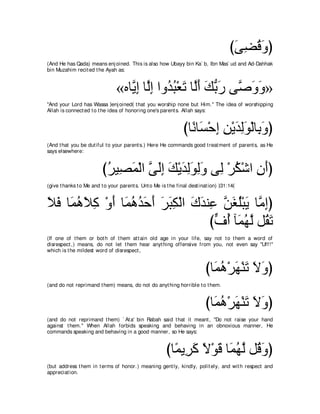 (وَقَضَىٰ)
(And He has Qada) means enjoined. This is also how Ubayy bin Ka`b, Ibn Mas`ud and Ad-Dahhak
bin Muzahim recited the Ayah as.
«وَوَصَّىٰ رَبُّكَ أَلَّا تَعْبُدُوا إِلَّا إِيَّاهُ»
"And your Lord has Wassa [enjoined] that you worship none but Him.'' The idea of worshipping
Allah is connected to the idea of honoring one's parents. Allah says:
(وَبِالْوَلِدَيْنِ إِحْسَانًا)
(And that you be dutiful to your parents.) Here He commands good treatment of parents, as He
says elsewhere:
(أَنِ اشْكُرْ لِي وَلِوَلِدَيْكَ إِلَىَّ الْمَصِيرُ)
(give thanks to Me and to your parents. Unto Me is the final destination) (31:14)
(إِمَّا يَبْلُغَنَّ عِندَكَ الْكِبَرَ أَحَدُهُمَا أَوْ كِلَاهُمَا فَلَا
تَقُل لَّهُمَآ أُفٍّ)
(If one of them or both of them attain old age in your life, say not to them a word of
disrespect,) means, do not let them hear anything offensive from you, not even say "Uff!''
which is the mildest word of disrespect,
(وَلَا تَنْهَرْهُمَا)
(and do not reprimand them) means, do not do anything horrible to them.
(وَلَا تَنْهَرْهُمَا)
(and do not reprimand them) `Ata' bin Rabah said that it meant, "Do not raise your hand
against them.'' When Allah forbids speaking and behaving in an obnoxious manner, He
commands speaking and behaving in a good manner, so He says:
(وَقُل لَّهُمَا قَوْلًا كَرِيمًا)
(but address them in terms of honor.) meaning gently, kindly, politely, and with respect and
appreciation.